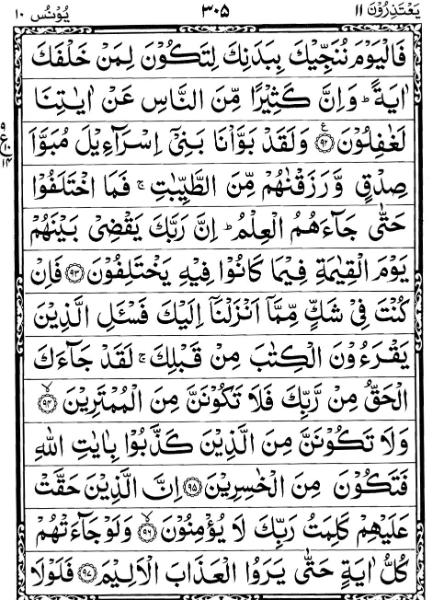 يَعْتَذِرُوْنَ ١١ ٣٠٥ يُوْنُس ١٠
فَالْيَوْمَ نُنَجِّيْكَ بِبَدَنِكَ لِتَكُوْنَ لِمَنْ خَلْفَكَ
اٰيَةً ؕ وَاِنَّ كَثِيْرًا مِّنَ النَّاسِ عَنْ اٰيٰتِنَا
لَغٰفِلُوْنَ ﴿٩٢﴾ وَلَقَدْ بَوَّاْنَا بَنِىْۤ اِسْرَآءِيْلَ مُبَوَّاَ
صِدْقٍ وَّرَزَقْنٰهُمْ مِّنَ الطَّيِّبٰتِ ۚ فَمَا اخْتَلَفُوْا
حَتّٰى جَآءَهُمُ الْعِلْمُ ؕ اِنَّ رَبَّكَ يَقْضِىْ بَيْنَهُمْ
يَوْمَ الْقِيٰمَةِ فِيْمَا كَانُوْا فِيْهِ يَخْتَلِفُوْنَ ﴿٩٣﴾ فَاِنْ
كُنْتَ فِىْ شَكٍّ مِّمَّاۤ اَنْزَلْنَاۤ اِلَيْكَ فَسْئَلِ الَّذِيْنَ
يَقْرَءُوْنَ الْكِتٰبَ مِنْ قَبْلِكَ ۚ لَقَدْ جَآءَكَ
الْحَقُّ مِنْ رَّبِّكَ فَلَا تَكُوْنَنَّ مِنَ الْمُمْتَرِيْنَ ﴿٩٤﴾
وَلَا تَكُوْنَنَّ مِنَ الَّذِيْنَ كَذَّبُوْا بِاٰيٰتِ اللّٰهِ
فَتَكُوْنَ مِنَ الْخٰسِرِيْنَ ﴿٩٥﴾ اِنَّ الَّذِيْنَ حَقَّتْ
عَلَيْهِمْ كَلِمَتُ رَبِّكَ لَا يُؤْمِنُوْنَ ﴿٩٦﴾ وَلَوْ جَآءَتْهُمْ
كُلُّ اٰيَةٍ حَتّٰى يَرَوُا الْعَذَابَ الْاَلِيْمَ ﴿٩٧﴾ فَلَوْلَا